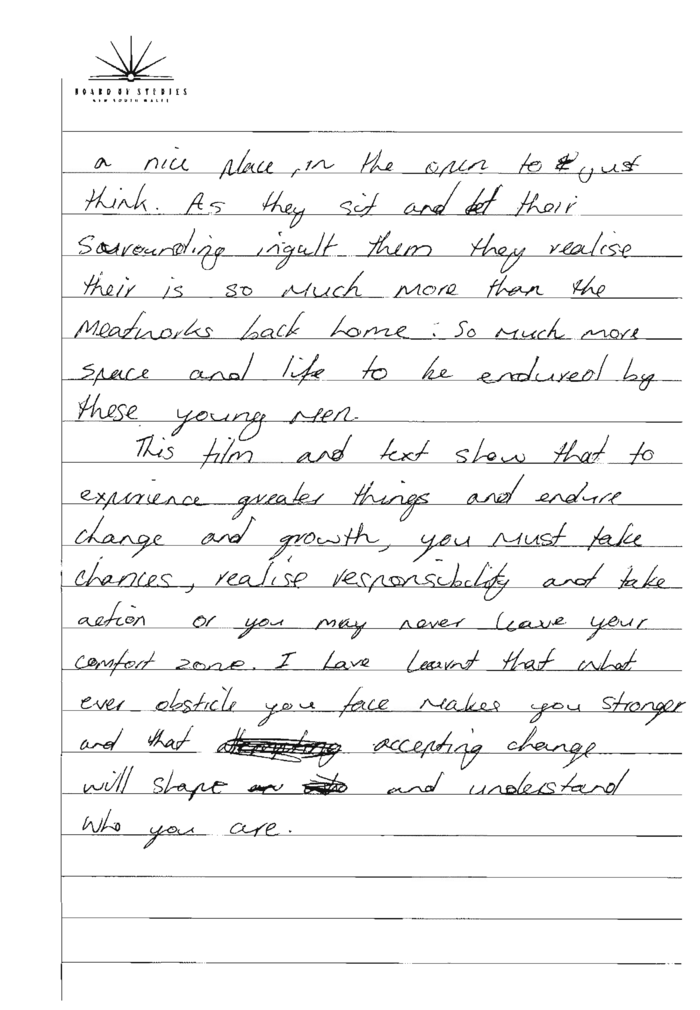 BOARD OF STUDIES
NEW SOUTH WALES
a nice place, in the open to just
think. As they sit and let their
Sourounding ingult them they realise
their is so much more than the
Meatworks back home. So much more
space and life to be endured by
these young men.
This film and text show that to
experience greater things and endure
change and growth, you must take
chances, realise responsibility and take
action or you may never leave your
comfort zone. I have learnt that what
ever obsticle you face makes you stronger
and that attempting accepting change
will shape and understand
who you are.